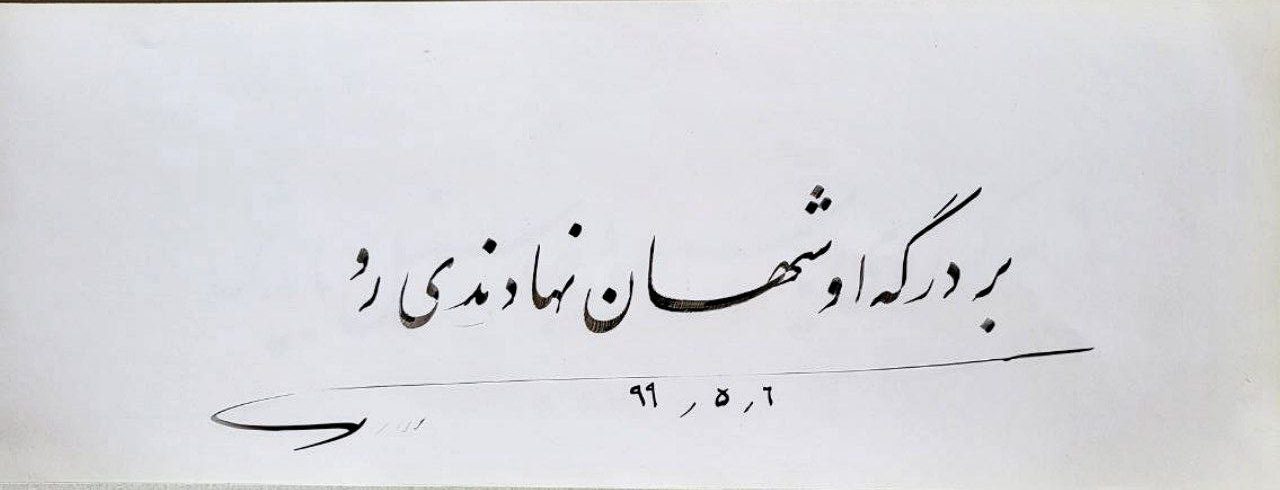 بر درگه او شهان نهادندی رو
٩٩٫٥٫٦